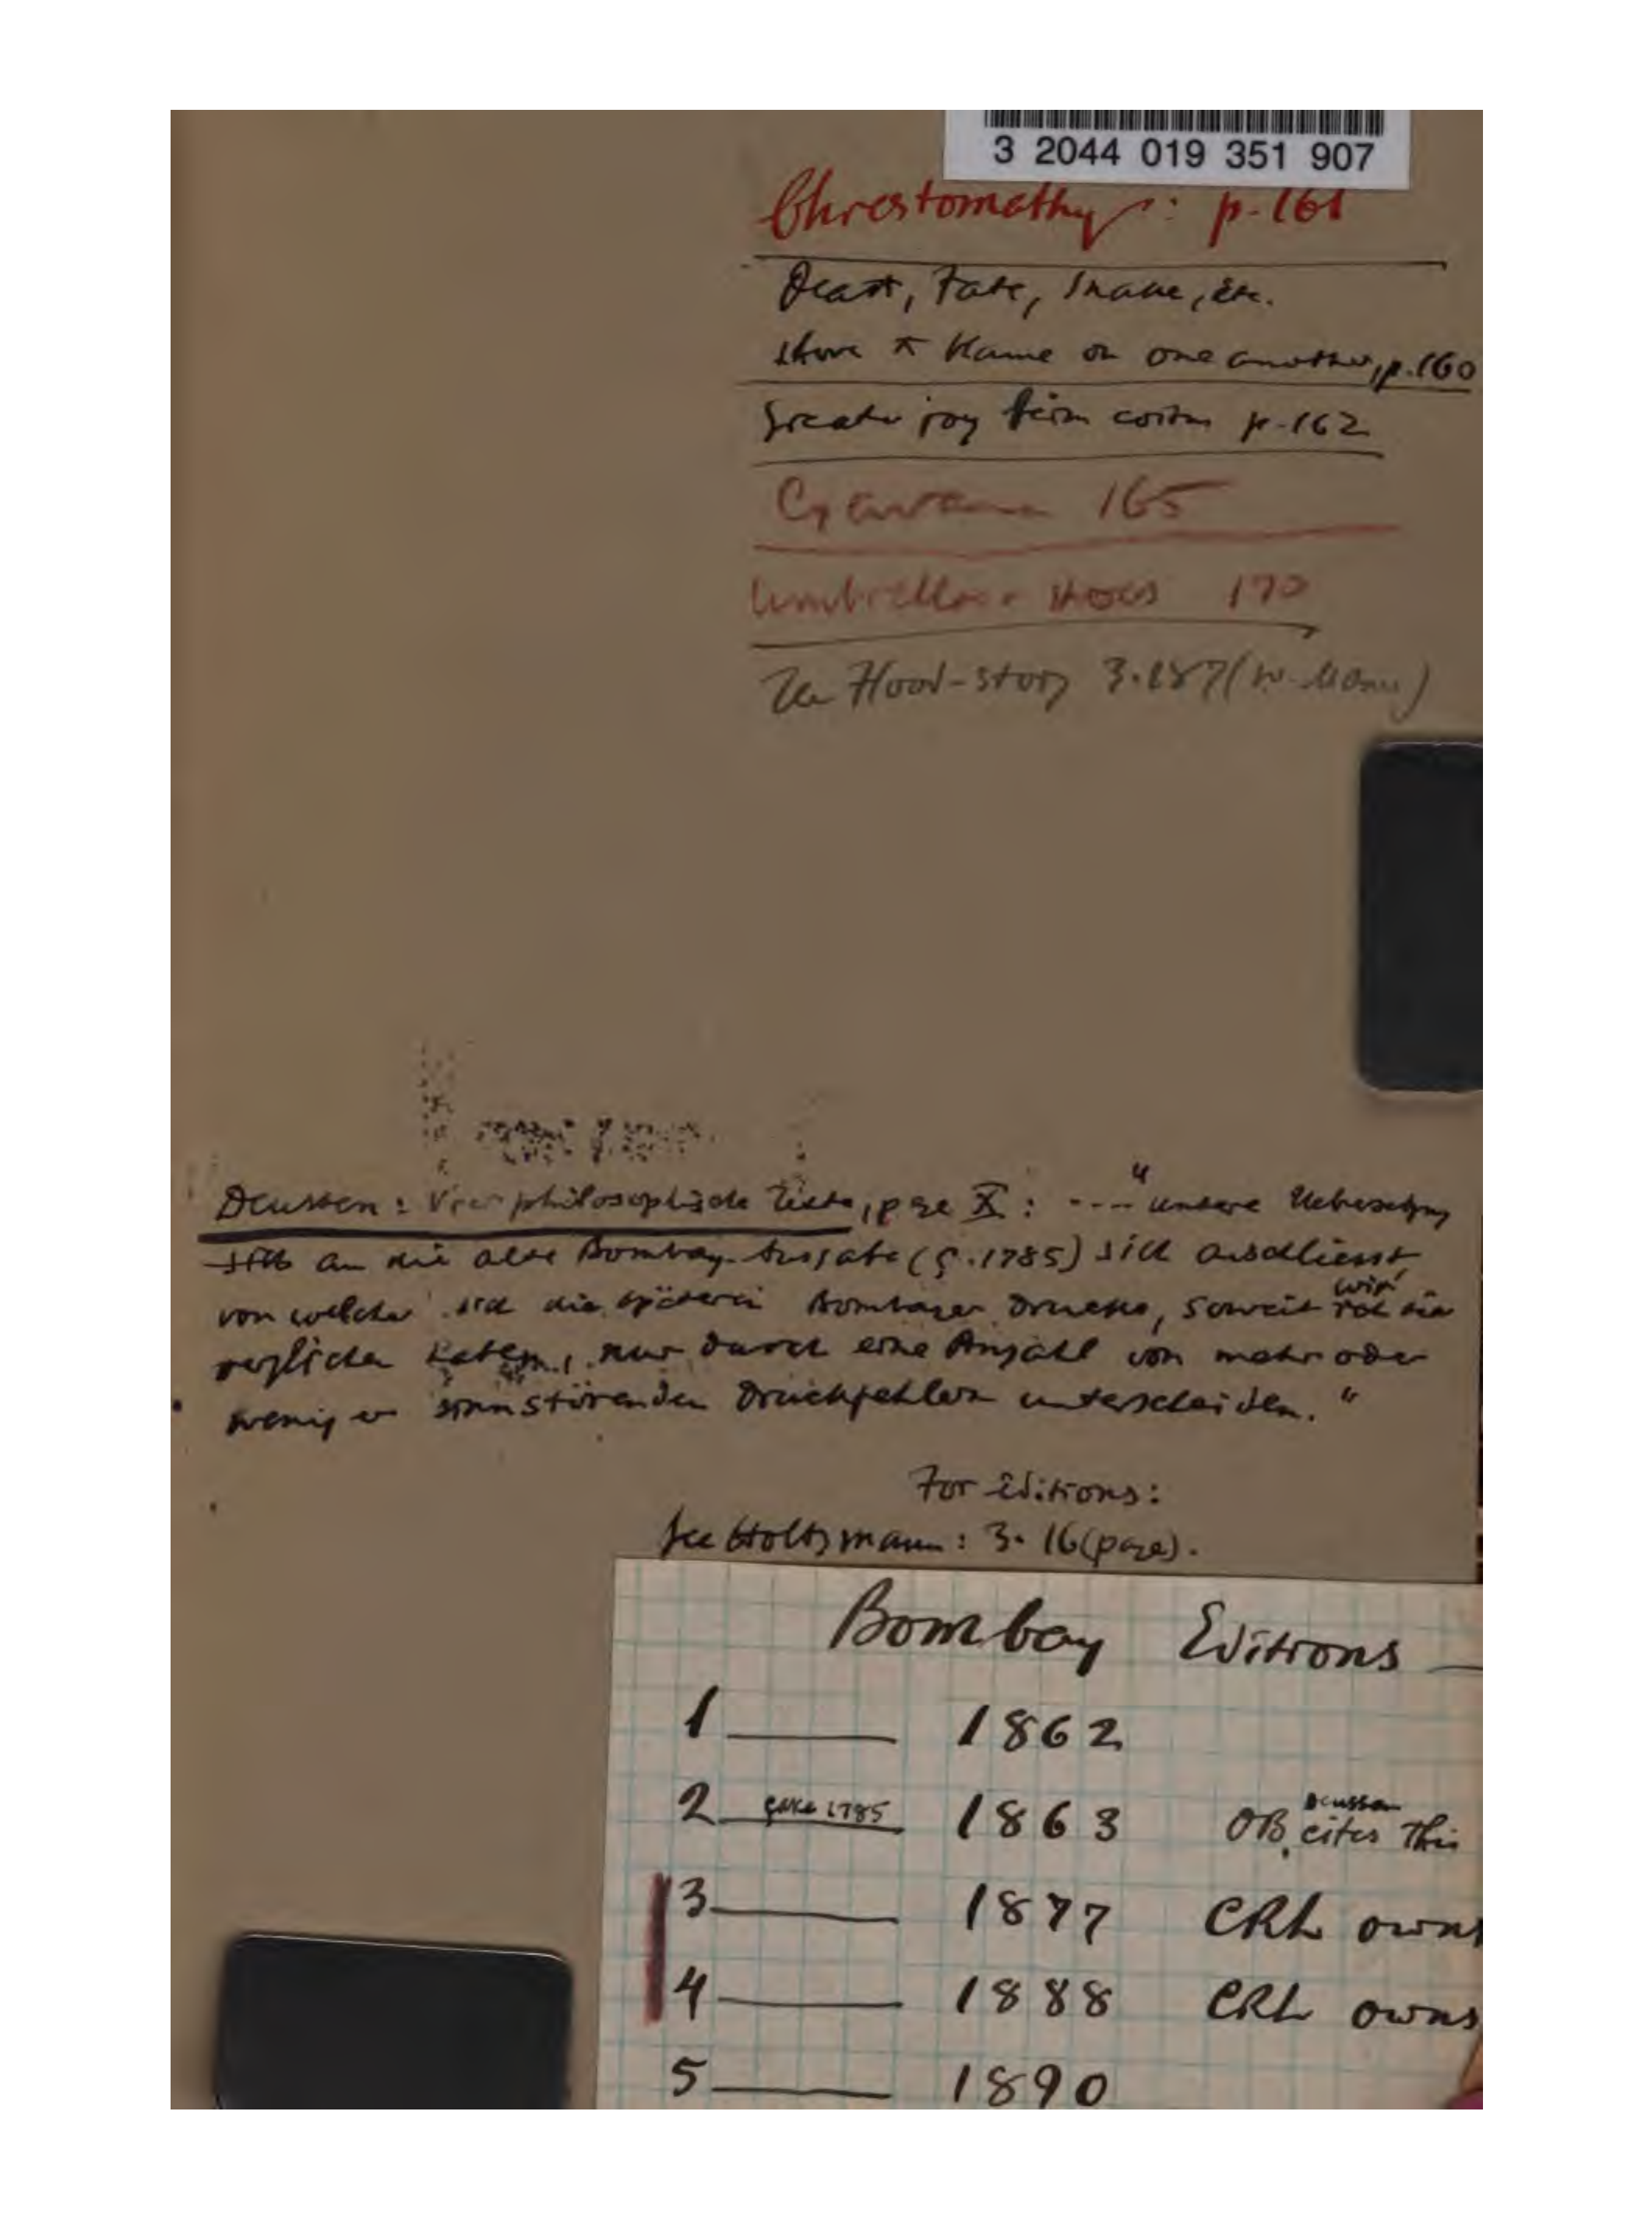 3 2044 019 351 907
Chrestomathy: p. 161
Death, Fate, Snake, etc.
shove blame on one another, p. 160
Greater joy from p. 162
Cyavana 165
Umbrella + shoes 170
Flood-story 3.187 (w. Manu)
Deussen: Vier philosophische Texte, page X: ---- "unsere Uebersetzung
an die alte Bombay-Ausgabe (ç. 1785) sich anschliesst
von welcher sich die späteren Bombayer Drucke, soweit wir sie
verglichen haben, nur durch eine Anzahl von mehr oder
weniger sinnstörenden Druckfehlern unterscheiden."
For editions:
See Holtzmann: 3. 16 (page).
Bombay Editions —
1 ——— 1862
2 çake 1785 1863 OB, Deussen cites this
3 ——— 1877 CRL owns
4 ——— 1888 CRL owns
5 ——— 1890